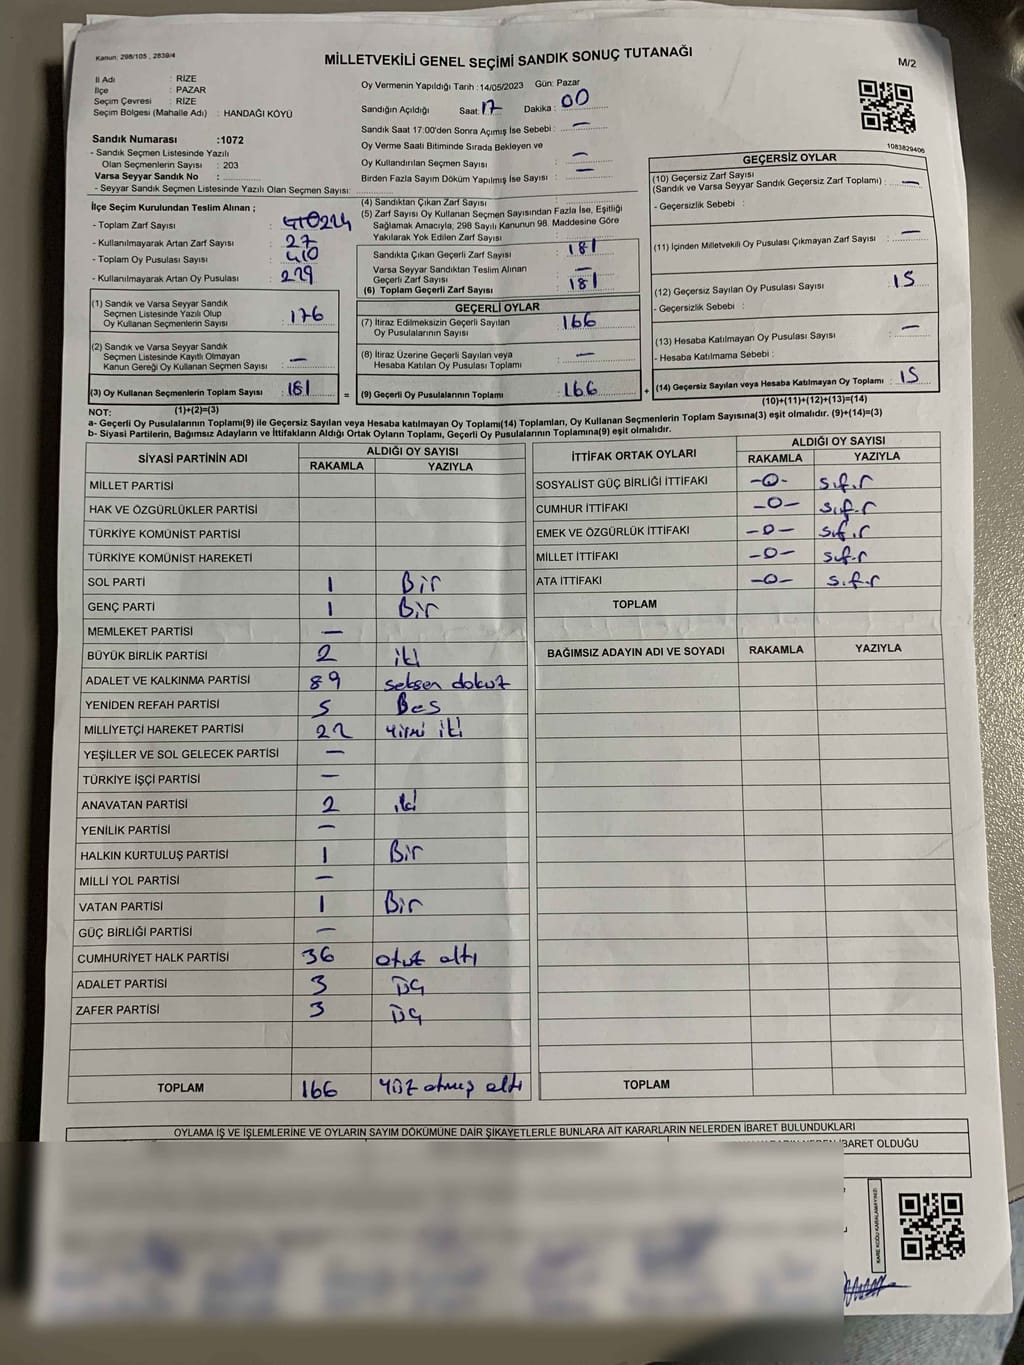 Kanun: 298/105, 2839/4
MİLLETVEKİLİ GENEL SEÇİMİ SANDIK SONUÇ TUTANAĞI
M/2
İl Adı : RİZE
İlçe : PAZAR
Seçim Çevresi : RİZE
Seçim Bölgesi (Mahalle Adı) : HANDAĞI KÖYÜ
Sandık Numarası :1072
- Sandık Seçmen Listesinde Yazılı
Olan Seçmenlerin Sayısı : 203
Varsa Seyyar Sandık No :
- Seyyar Sandık Seçmen Listesinde Yazılı Olan Seçmen Sayısı:
Oy Vermenin Yapıldığı Tarih :14/05/2023 Gün: Pazar
Sandığın Açıldığı Saat: 17 Dakika : 00
Sandık Saat 17:00'den Sonra Açımış İse Sebebi : —
Oy Verme Saati Bitiminde Sırada Bekleyen ve
Oy Kullandırılan Seçmen Sayısı : —
Birden Fazla Sayım Döküm Yapılmış İse Sayısı : —
1083829406
İlçe Seçim Kurulundan Teslim Alınan ;
- Toplam Zarf Sayısı : 224
- Kullanılmayarak Artan Zarf Sayısı : 27
- Toplam Oy Pusulası Sayısı : 410
- Kullanılmayarak Artan Oy Pusulası : 229
(1) Sandık ve Varsa Seyyar Sandık
Seçmen Listesinde Yazılı Olup
Oy Kullanan Seçmenlerin Sayısı : 176
(2) Sandık ve Varsa Seyyar Sandık
Seçmen Listesinde Kayıtlı Olmayan
Kanun Gereği Oy Kullanan Seçmen Sayısı : —
(3) Oy Kullanan Seçmenlerin Toplam Sayısı : 181
(1)+(2)=(3)
(4) Sandıktan Çıkan Zarf Sayısı :
(5) Zarf Sayısı Oy Kullanan Seçmen Sayısından Fazla İse, Eşitliği
Sağlamak Amacıyla, 298 Sayılı Kanunun 98. Maddesine Göre
Yakılarak Yok Edilen Zarf Sayısı :
Sandıkta Çıkan Geçerli Zarf Sayısı : 181
Varsa Seyyar Sandıktan Teslim Alınan
Geçerli Zarf Sayısı : —
(6) Toplam Geçerli Zarf Sayısı : 181
GEÇERLİ OYLAR
(7) İtiraz Edilmeksizin Geçerli Sayılan
Oy Pusulalarının Sayısı : 166
(8) İtiraz Üzerine Geçerli Sayılan veya
Hesaba Katılan Oy Pusulaları Toplamı : —
= (9) Geçerli Oy Pusulalarının Toplamı : 166
GEÇERSİZ OYLAR
(10) Geçersiz Zarf Sayısı
(Sandık ve Varsa Seyyar Sandık Geçersiz Zarf Toplamı) : —
- Geçersizlik Sebebi :
(11) İçinden Milletvekili Oy Pusulası Çıkmayan Zarf Sayısı : —
(12) Geçersiz Sayılan Oy Pusulası Sayısı : 15
- Geçersizlik Sebebi :
(13) Hesaba Katılmayan Oy Pusulası Sayısı : —
- Hesaba Katılmama Sebebi :
+ (14) Geçersiz Sayılan veya Hesaba Katılmayan Oy Toplamı : 15
(10)+(11)+(12)+(13)=(14)
NOT:
a- Geçerli Oy Pusulalarının Toplamı(9) ile Geçersiz Sayılan veya Hesaba katılmayan Oy Toplamı(14) Toplamları, Oy Kullanan Seçmenlerin Toplam Sayısına(3) eşit olmalıdır. (9)+(14)=(3)
b- Siyasi Partilerin, Bağımsız Adayların ve İttifakların Aldığı Ortak Oyların Toplamı, Geçerli Oy Pusulalarının Toplamına(9) eşit olmalıdır.
SİYASİ PARTİNİN ADI ALDIĞI OY SAYISI
RAKAMLA YAZIYLA
MİLLET PARTİSİ
HAK VE ÖZGÜRLÜKLER PARTİSİ
TÜRKİYE KOMÜNİST PARTİSİ
TÜRKİYE KOMÜNİST HAREKETİ
SOL PARTİ 1 Bir
GENÇ PARTİ 1 Bir
MEMLEKET PARTİSİ —
BÜYÜK BİRLİK PARTİSİ 2 iki
ADALET VE KALKINMA PARTİSİ 89 seksen dokuz
YENİDEN REFAH PARTİSİ 5 Beş
MİLLİYETÇİ HAREKET PARTİSİ 22 yirmi iki
YEŞİLLER VE SOL GELECEK PARTİSİ —
TÜRKİYE İŞÇİ PARTİSİ —
ANAVATAN PARTİSİ 2 iki
YENİLİK PARTİSİ —
HALKIN KURTULUŞ PARTİSİ 1 Bir
MİLLİ YOL PARTİSİ —
VATAN PARTİSİ 1 Bir
GÜÇ BİRLİĞİ PARTİSİ —
CUMHURİYET HALK PARTİSİ 36 otuz altı
ADALET PARTİSİ 3 üç
ZAFER PARTİSİ 3 üç
TOPLAM 166 yüz atmış altı
İTTİFAK ORTAK OYLARI ALDIĞI OY SAYISI
RAKAMLA YAZIYLA
SOSYALİST GÜÇ BİRLİĞİ İTTİFAKI -0- sıfır
CUMHUR İTTİFAKI -0- sıfır
EMEK VE ÖZGÜRLÜK İTTİFAKI -0- sıfır
MİLLET İTTİFAKI -0- sıfır
ATA İTTİFAKI -0- sıfır
TOPLAM
BAĞIMSIZ ADAYIN ADI VE SOYADI RAKAMLA YAZIYLA
TOPLAM
OYLAMA İŞ VE İŞLEMLERİNE VE OYLARIN SAYIM DÖKÜMÜNE DAİR ŞİKAYETLERLE BUNLARA AİT KARARLARIN NELERDEN İBARET BULUNDUKLARI
İBARET OLDUĞU
KARE KODU KARALAMAYINIZ!